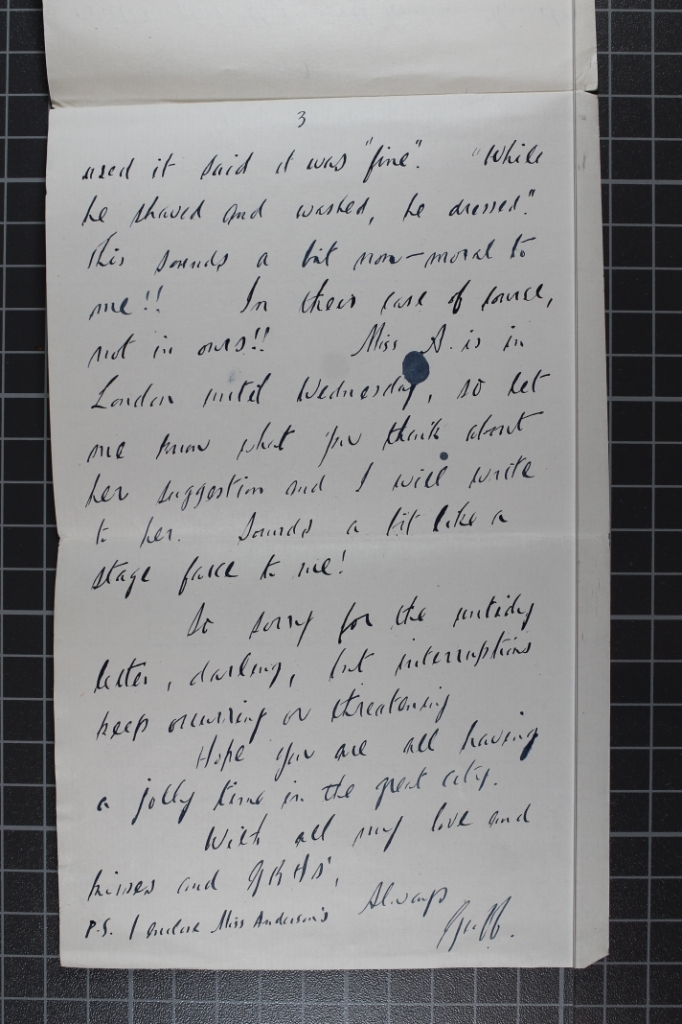 3
used it said it was "fine". "While
he shaved and washed, he dressed".
This sounds a bit non-moral to
me!! In their case of course,
not in ours!! Miss A. is in
London until Wednesday, so let
me know what you think about
her suggestion and I will write
to her. Sounds a bit like a
stage farce to me!
So sorry for the untidy
letter, darling, but interruptions
keep occurring or threatening
Hope you are all having
a jolly time in the great city.
With all my love and
kisses and
Always
P.S. I enclose Miss Anderson's